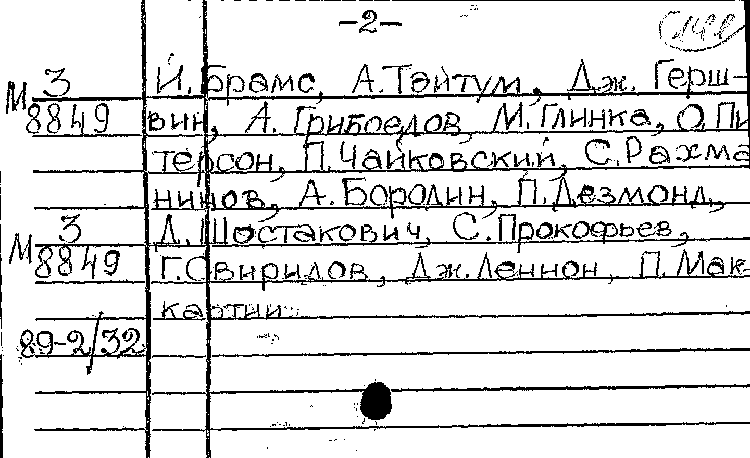 -2-
М 3 Й. Брамс, А. Тейтум, Дж. Герш-
8849 вин, А. Грибоедов, М. Глинка, О. Пи
терсон, П. Чайковский, С. Рахма
нинов, А. Бородин, П. Дезмонд,
М 3 Д. Шостакович, С. Прокофьев,
8849 Г. Свиридов, Дж. Леннон, П. Мак-
картни
89-2/32